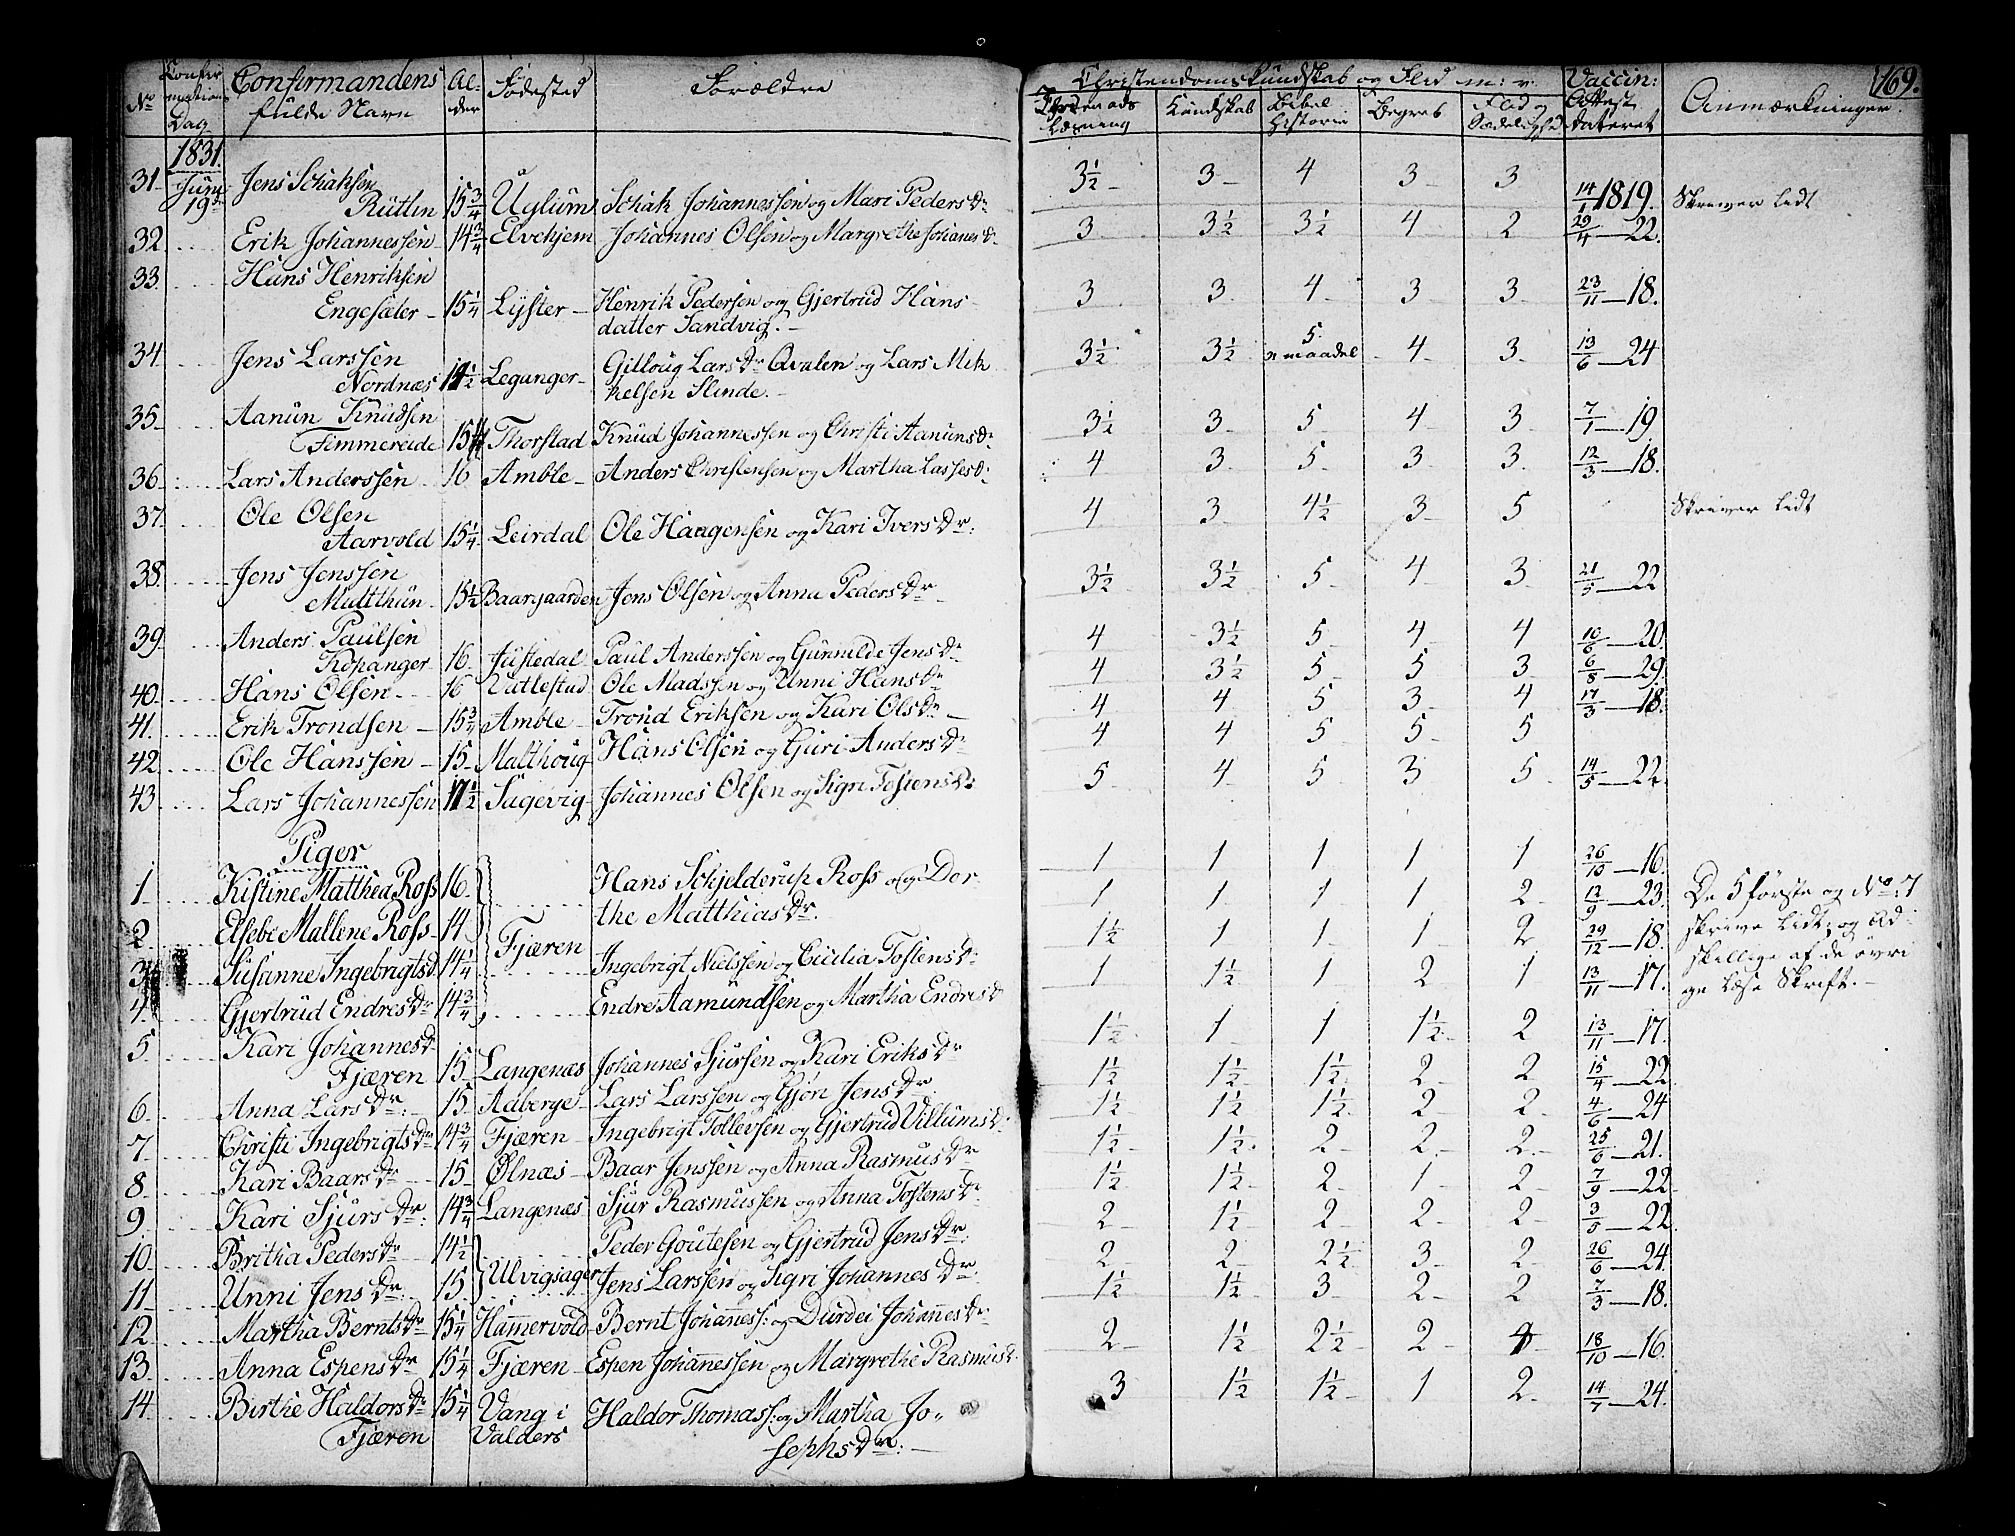 169.
No Confirmations Dag Confirmandens fulde Navn Alder Fødested Forældre Christendomskundskab og Flid m: v: Vaccin: Attest dateret Anmærkninger
Læsning Kundskab Bibel Historie Begreb Flid og Sædelighed
1831.
31. Juni 19de Jens Schaksen Rutlin 15 3/4 Uglum Schak Johannessen og Mari Peders Dr 3 1/2 3 4 3 3 14/1 1819. Skriver lidt
32. Erik Johannessen 14 3/4 Elvehjem Johannes Olsen og Margrethe Johanes Dr 3 3 1/2 3 1/2 4 2 29/4 22.
33. Hans Henriksen Engesæter 15 1/4 Lyster Henrik Pedersen og Gjertrud Hans
datter Sandvig. 3 3 4 3 3 23/11 18.
34. Jens Larssen Nordnæs 14 1/2 Leganger Gilloug Lars Dr Qvalen og Lars Mik
kelsen Slinde. 3 1/2 3 1/2 5 maadel 4 3 13/6 24
35. Aanun Knudsen Fimmereide 15 1/4 Thorstad Knud Johannessen og Christi Aanuns Dr 3 1/2 3 5 4 3 7/1 19
36. Lars Anderssen 16 Amble Anders Christensen og Martha Lasses Dr 4 3 5 3 3 12/3 18.
37. Ole Olsen Aarvold 15 1/4 Leirdal Ole Haagensen og Kari Ivers Dr: 4 3 4 1/2 3 5 Skriver lidt
38. Jens Jenssen Mutthun 15 1/2 Baargaarden Jens Olsen og Anna Peders Dr 3 1/2 3 1/2 5 4 3 21/5 22
39. Anders Paulsen Kopanger 16 Justedal Paul Anderssen og Gunnilde Jens Dr 4 3 1/2 5 4 4 10/6 20.
40. Hans Olsen 16 Vatlestad Ole Madssen og Unni Hans Dr 4 3 1/2 5 5 3 6/8 29.
41. Erik Trondsen 15 3/4 Amble Trond Eriksen og Kari Ols Dr 4 4 5 3 4 17/3 18.
42. Ole Hanssen 15 Malthoug Hans Olsen og Guri Anders Dr 4 4 5 5 5
43. Lars Johannessen 17 1/2 Sugevig Johannes Olsen og Sigri Tostens Dr 5 4 5 3 5 14/5 22
Piger
1. Kistine Matthea Ross 16 Hans Schjelderup Ross og Dor-
the Matthias Dr. 1 1 1 1 1 26/10 16.
2. Elsebe Mallene Ross 14 Fjæren 1 1 1 1 2 12/9 23. De 5 første og No: 7
skrive lidt; og Ad-
skillige af de øvri
ge læse Skrift.
3. Susanne Ingebrigts d 14 1/4 Ingebrigt Nielssen og Cicilia Tostens Dr 1 1/2 1 1 1 2 29/12 18.
4. Gjertrud Endres Dr 14 3/4 Endre Aamundsen og Martha Endres d 1 1 1/2 1 2 1 13/11 17.
5. Kari Johannes d Fjæren 15 Langenæs Johannes Sjursen og Kari Eriks Dr 1 1/2 1 1 1 1/2 2 13/11 17.
6. Anna Lars Dr. 15 Aaberge Lars Larssen og Gjøri Jens Dr 1 1/2 1 1/2 1 1/2 2 2 15/4 22
7. Christi Ingebrigts Dr 14 3/4 Fjæren Ingebrigt Tollevsen og Gjertrud Villums d: 1 1/2 1 1/2 1 1/2 2 2 4/6 24
8. Kari Baars Dr 15 Ølnæs Baar Jenssen og Anna Rasmus Dr 1 1/2 1 1/2 2 2 2 25/6 21.
9. Kari Sjurs Dr: 14 3/4 Langenæs Sjur Rasmussen og Anna Tostens Dr 1 1/2 1 1/2 2 1 2 7/9 22
10. Britha Peders Dr 14 1/2 Ulvigsager Peder Goutesen og Gjertrud Jens Dr: 2 1 1/2 2 2 2 3/5 22.
11. Unni Jens Dr. 15 Jens Larssen og Sigri Johannes Dr: 2 2 2 1/2 3 2 26/6 24.
12. Martha Bernts Dr 15 1/4 Hammervold Bernt Johaness: og Durdei Johanes Dr: 1 1/2 1 1/2 3 2 2 7/3 18.
13. Anna Espens Dr 15 1/4 Fjæren Espen Johannessen og Margrethe Rasmus d. 2 1 1/2 2 1/2 2 18/10 16.
14. Birthe Haldors Dr Fjæren 15 1/4 Vang i Valders Haldor Thomass: og Martha Jo-
sephs Dr: 3 1 1/2 1 1/2 1 2 14/7 24.